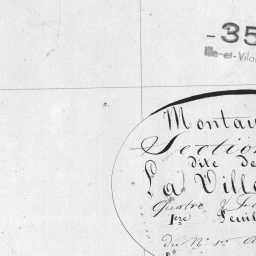 - 35
Ille-et-Vila
Montau
Section
dite de
La Ville
1ere Feuill
du N° 1er